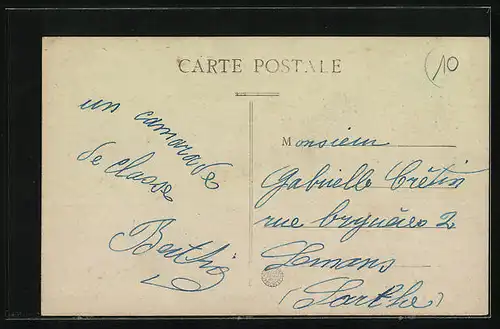 CARTE POSTALE
(10
un camarade
de classe
Berthin
Monsieur
Gabrielle Crétin
rue brynéres 2
Lemans
(Sarthe)